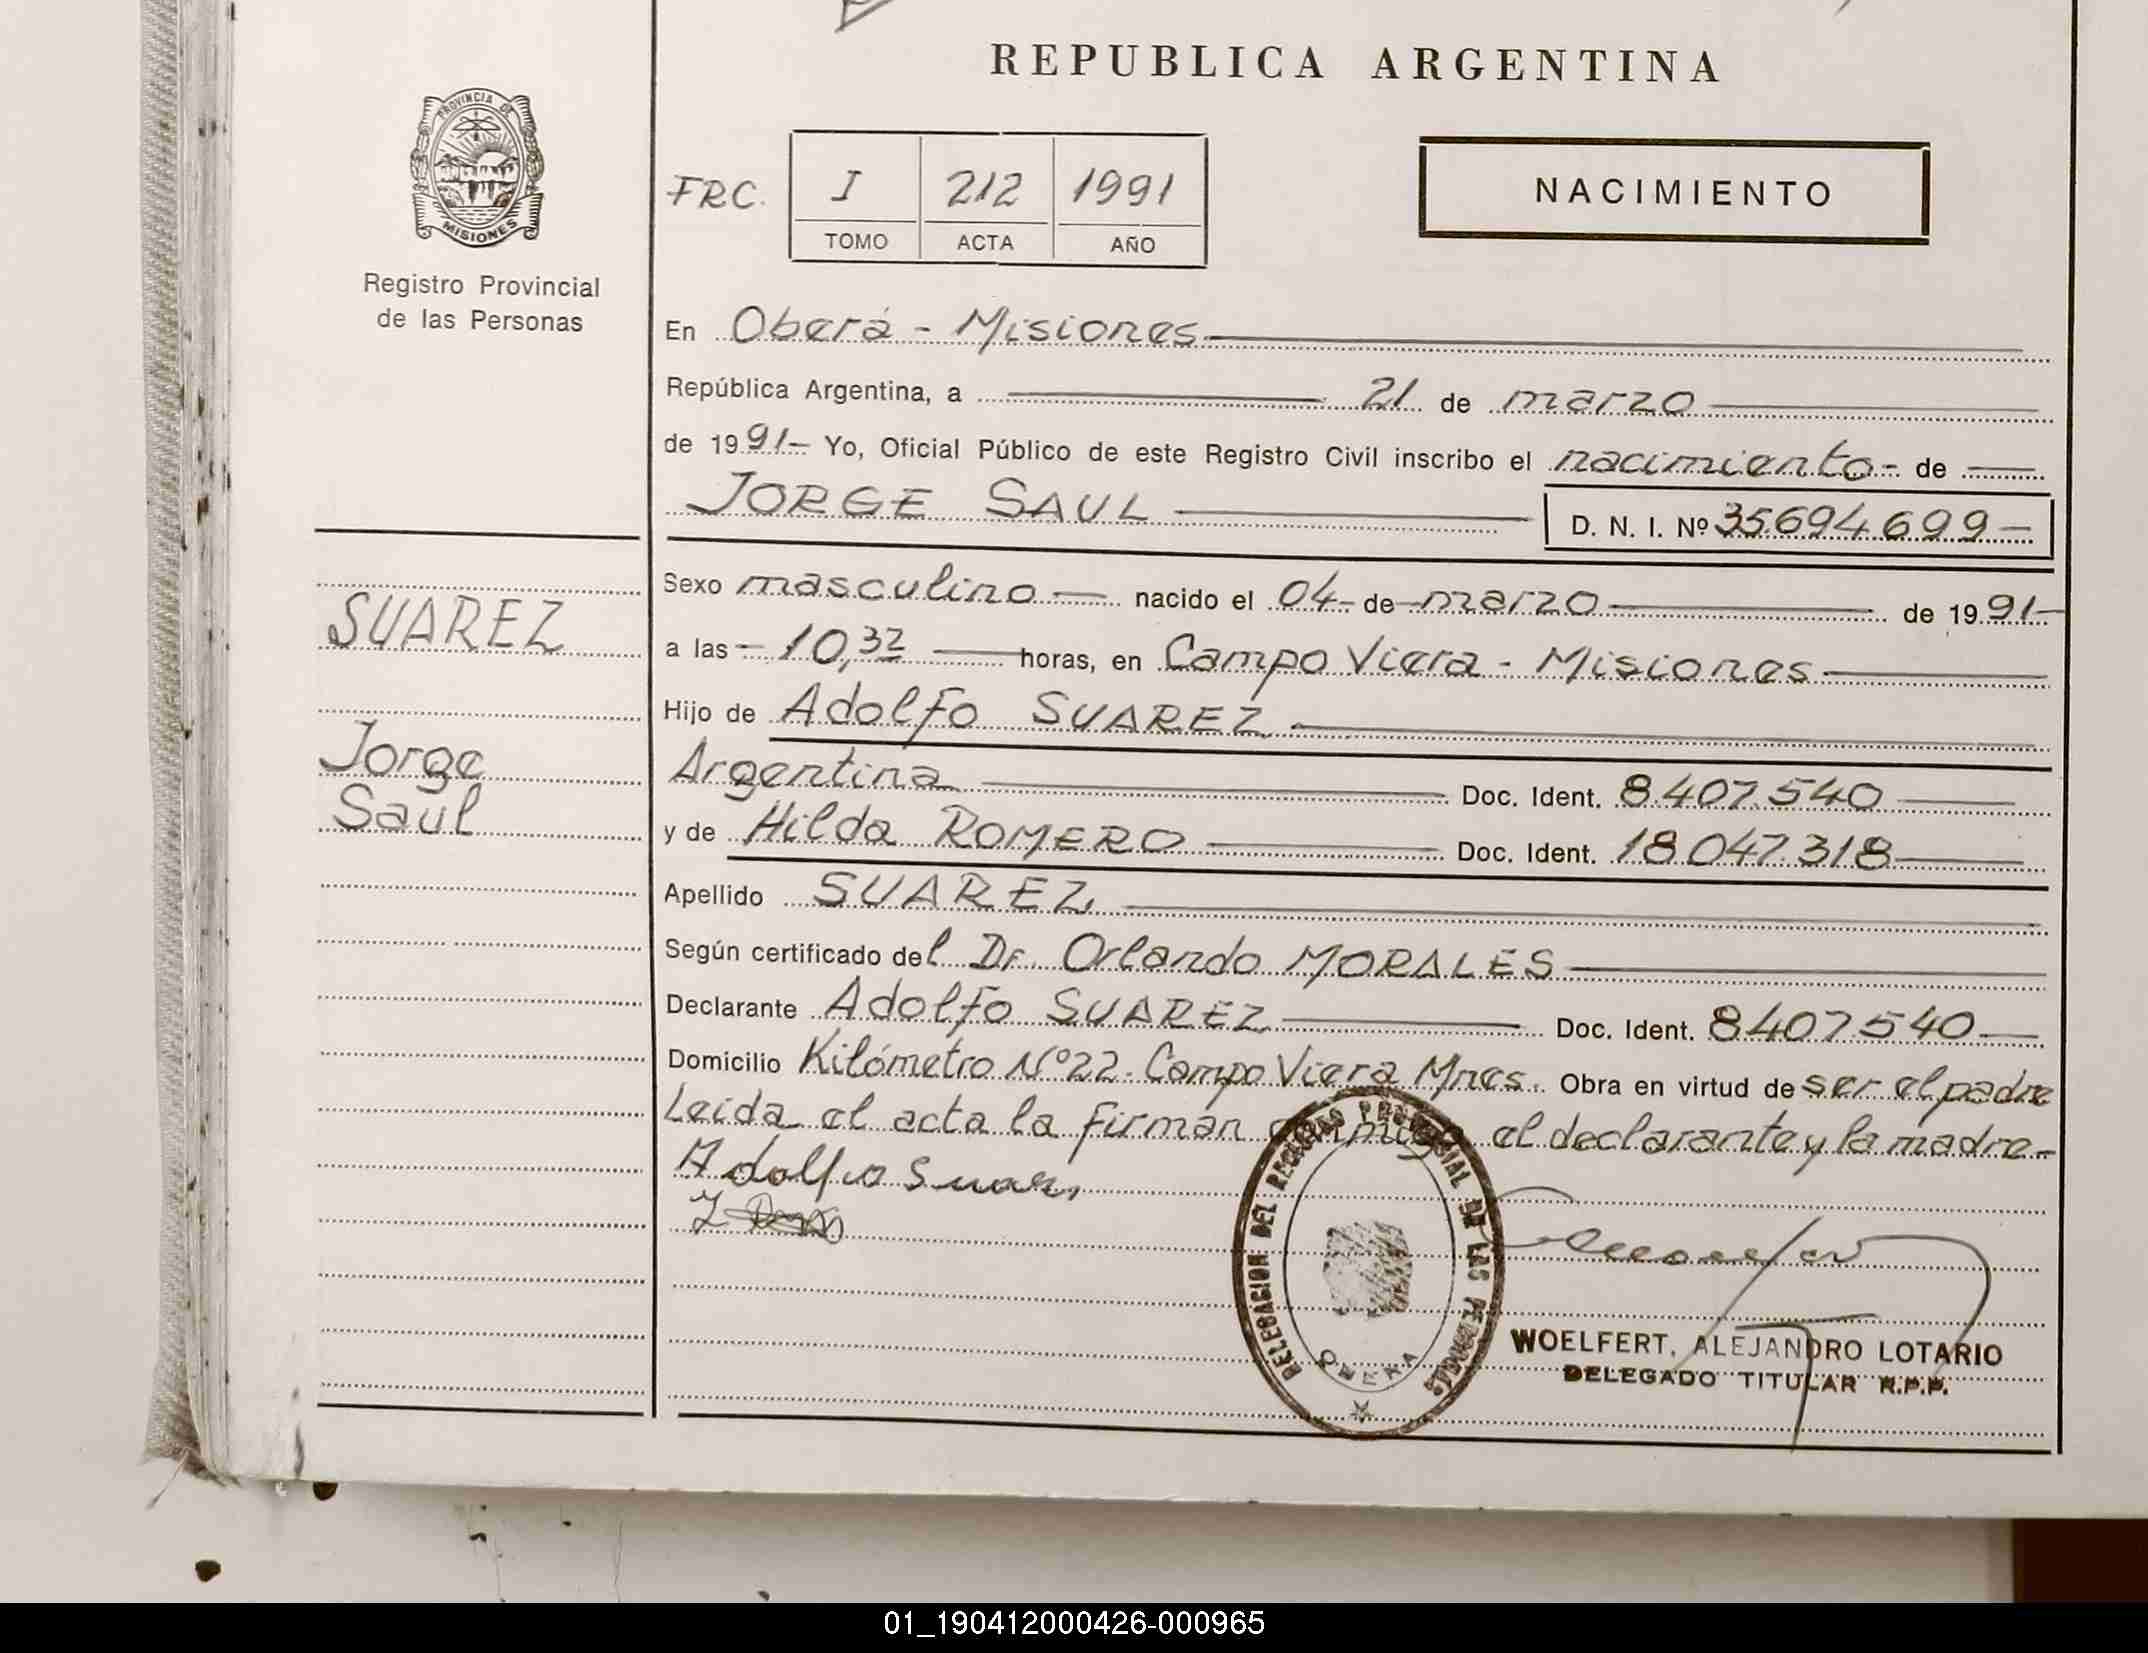 REPUBLICA ARGENTINA
PROVINCIA DE
MISIONES
Registro Provincial
de las Personas
FRC. I 212 1991
TOMO ACTA AÑO
NACIMIENTO
En Oberá - Misiones
República Argentina, a 21 de marzo
de 1991- Yo, Oficial Público de este Registro Civil inscribo el nacimiento- de
JORGE SAUL D. N. I. Nº 35.694.699-
SUAREZ
Jorge
Saul
Sexo masculino nacido el 04- de marzo de 1991-
a las - 10,32 horas, en Campo Viera - Misiones
Hijo de Adolfo SUAREZ
Argentina Doc. Ident. 8.407.540
y de Hilda ROMERO Doc. Ident. 18.047.318
Apellido SUAREZ
Según certificado del Dr. Orlando MORALES
Declarante Adolfo SUAREZ Doc. Ident. 8.407.540
Domicilio Kilómetro Nº 22- Campo Viera Mnes. Obra en virtud de ser el padre
Leida el acta la firman conmigo el declarante y la madre-
Adolfo Suarez
DELEGACION DEL REGISTRO PROVINCIAL DE LAS PERSONAS
OBERA
WOELFERT, ALEJANDRO LOTARIO
DELEGADO TITULAR R.P.P.
01_190412000426-000965